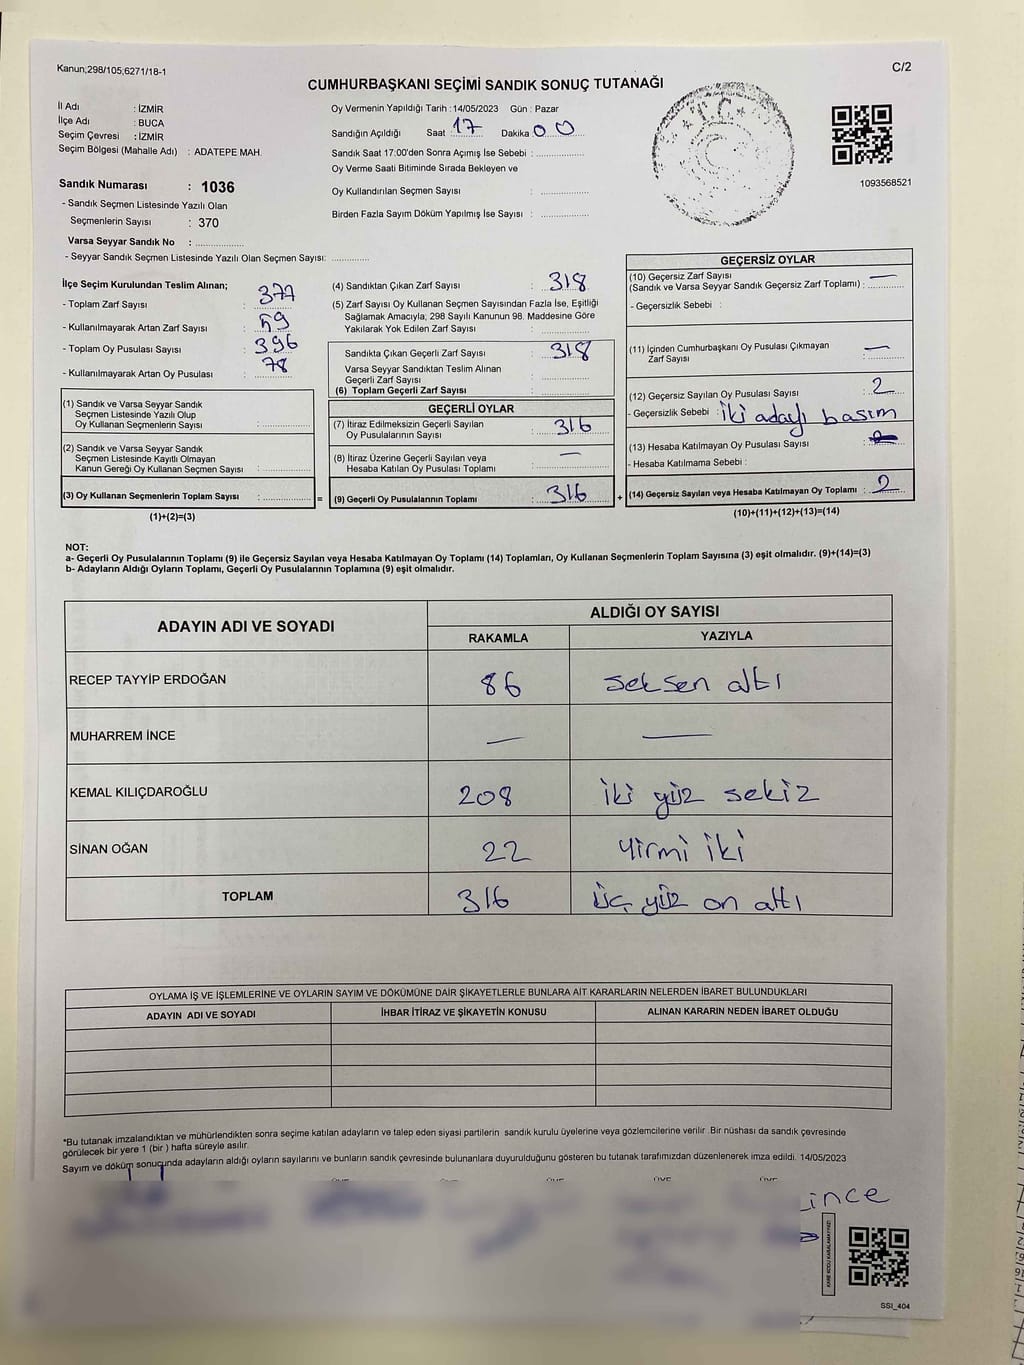 Kanun;298/105;6271/18-1
C/2
CUMHURBAŞKANI SEÇİMİ SANDIK SONUÇ TUTANAĞI
İl Adı : İZMİR
İlçe Adı : BUCA
Seçim Çevresi : İZMİR
Seçim Bölgesi (Mahalle Adı) : ADATEPE MAH.
Oy Vermenin Yapıldığı Tarih : 14/05/2023 Gün : Pazar
Sandığın Açıldığı Saat : 17 Dakika : 00
Sandık Saat 17:00'den Sonra Açımış İse Sebebi :
Oy Verme Saati Bitiminde Sırada Bekleyen ve
Oy Kullandırılan Seçmen Sayısı :
Birden Fazla Sayım Döküm Yapılmış İse Sayısı :
1093568521
Sandık Numarası : 1036
- Sandık Seçmen Listesinde Yazılı Olan
Seçmenlerin Sayısı : 370
Varsa Seyyar Sandık No :
- Seyyar Sandık Seçmen Listesinde Yazılı Olan Seçmen Sayısı:
İlçe Seçim Kurulundan Teslim Alınan;
- Toplam Zarf Sayısı :
- Kullanılmayarak Artan Zarf Sayısı :
- Toplam Oy Pusulası Sayısı : 396
- Kullanılmayarak Artan Oy Pusulası : 78
(1) Sandık ve Varsa Seyyar Sandık
Seçmen Listesinde Yazılı Olup
Oy Kullanan Seçmenlerin Sayısı :
(2) Sandık ve Varsa Seyyar Sandık
Seçmen Listesinde Kayıtlı Olmayan
Kanun Gereği Oy Kullanan Seçmen Sayısı :
(3) Oy Kullanan Seçmenlerin Toplam Sayısı : =
(1)+(2)=(3)
(4) Sandıktan Çıkan Zarf Sayısı : 318
(5) Zarf Sayısı Oy Kullanan Seçmen Sayısından Fazla İse, Eşitliği
Sağlamak Amacıyla, 298 Sayılı Kanunun 98. Maddesine Göre
Yakılarak Yok Edilen Zarf Sayısı :
Sandıkta Çıkan Geçerli Zarf Sayısı : 318
Varsa Seyyar Sandıktan Teslim Alınan
Geçerli Zarf Sayısı :
(6) Toplam Geçerli Zarf Sayısı :
GEÇERLİ OYLAR
(7) İtiraz Edilmeksizin Geçerli Sayılan
Oy Pusulalarının Sayısı : 316
(8) İtiraz Üzerine Geçerli Sayılan veya
Hesaba Katılan Oy Pusulası Toplamı : —
(9) Geçerli Oy Pusulalarının Toplamı : 316 +
GEÇERSİZ OYLAR
(10) Geçersiz Zarf Sayısı
(Sandık ve Varsa Seyyar Sandık Geçersiz Zarf Toplamı) : —
- Geçersizlik Sebebi :
(11) İçinden Cumhurbaşkanı Oy Pusulası Çıkmayan
Zarf Sayısı : —
(12) Geçersiz Sayılan Oy Pusulası Sayısı : 2
- Geçersizlik Sebebi : iki adayı basım
(13) Hesaba Katılmayan Oy Pusulası Sayısı :
- Hesaba Katılmama Sebebi :
(14) Geçersiz Sayılan veya Hesaba Katılmayan Oy Toplamı : 2
(10)+(11)+(12)+(13)=(14)
NOT:
a- Geçerli Oy Pusulalarının Toplamı (9) ile Geçersiz Sayılan veya Hesaba Katılmayan Oy Toplamı (14) Toplamları, Oy Kullanan Seçmenlerin Toplam Sayısına (3) eşit olmalıdır. (9)+(14)=(3)
b- Adayların Aldığı Oyların Toplamı, Geçerli Oy Pusulalarının Toplamına (9) eşit olmalıdır.
ADAYIN ADI VE SOYADI
ALDIĞI OY SAYISI
RAKAMLA YAZIYLA
RECEP TAYYİP ERDOĞAN 86 seksen altı
MUHARREM İNCE — —
KEMAL KILIÇDAROĞLU 208 iki yüz sekiz
SİNAN OĞAN 22 yirmi iki
TOPLAM 316 üç yüz on altı
OYLAMA İŞ VE İŞLEMLERİNE VE OYLARIN SAYIM VE DÖKÜMÜNE DAİR ŞİKAYETLERLE BUNLARA AİT KARARLARIN NELERDEN İBARET BULUNDUKLARI
ADAYIN ADI VE SOYADI İHBAR İTİRAZ VE ŞİKAYETİN KONUSU ALINAN KARARIN NEDEN İBARET OLDUĞU
*Bu tutanak imzalandıktan ve mühürlendikten sonra seçime katılan adayların ve talep eden siyasi partilerin sandık kurulu üyelerine veya gözlemcilerine verilir .Bir nüshası da sandık çevresinde
görülecek bir yere 1 (bir ) hafta süreyle asılır.
Sayım ve döküm sonucunda adayların aldığı oyların sayılarını ve bunların sandık çevresinde bulunanlara duyurulduğunu gösteren bu tutanak tarafımızdan düzenlenerek imza edildi. 14/05/2023
ince
KARE KODU KARALAMAYINIZ!
SSİ_404